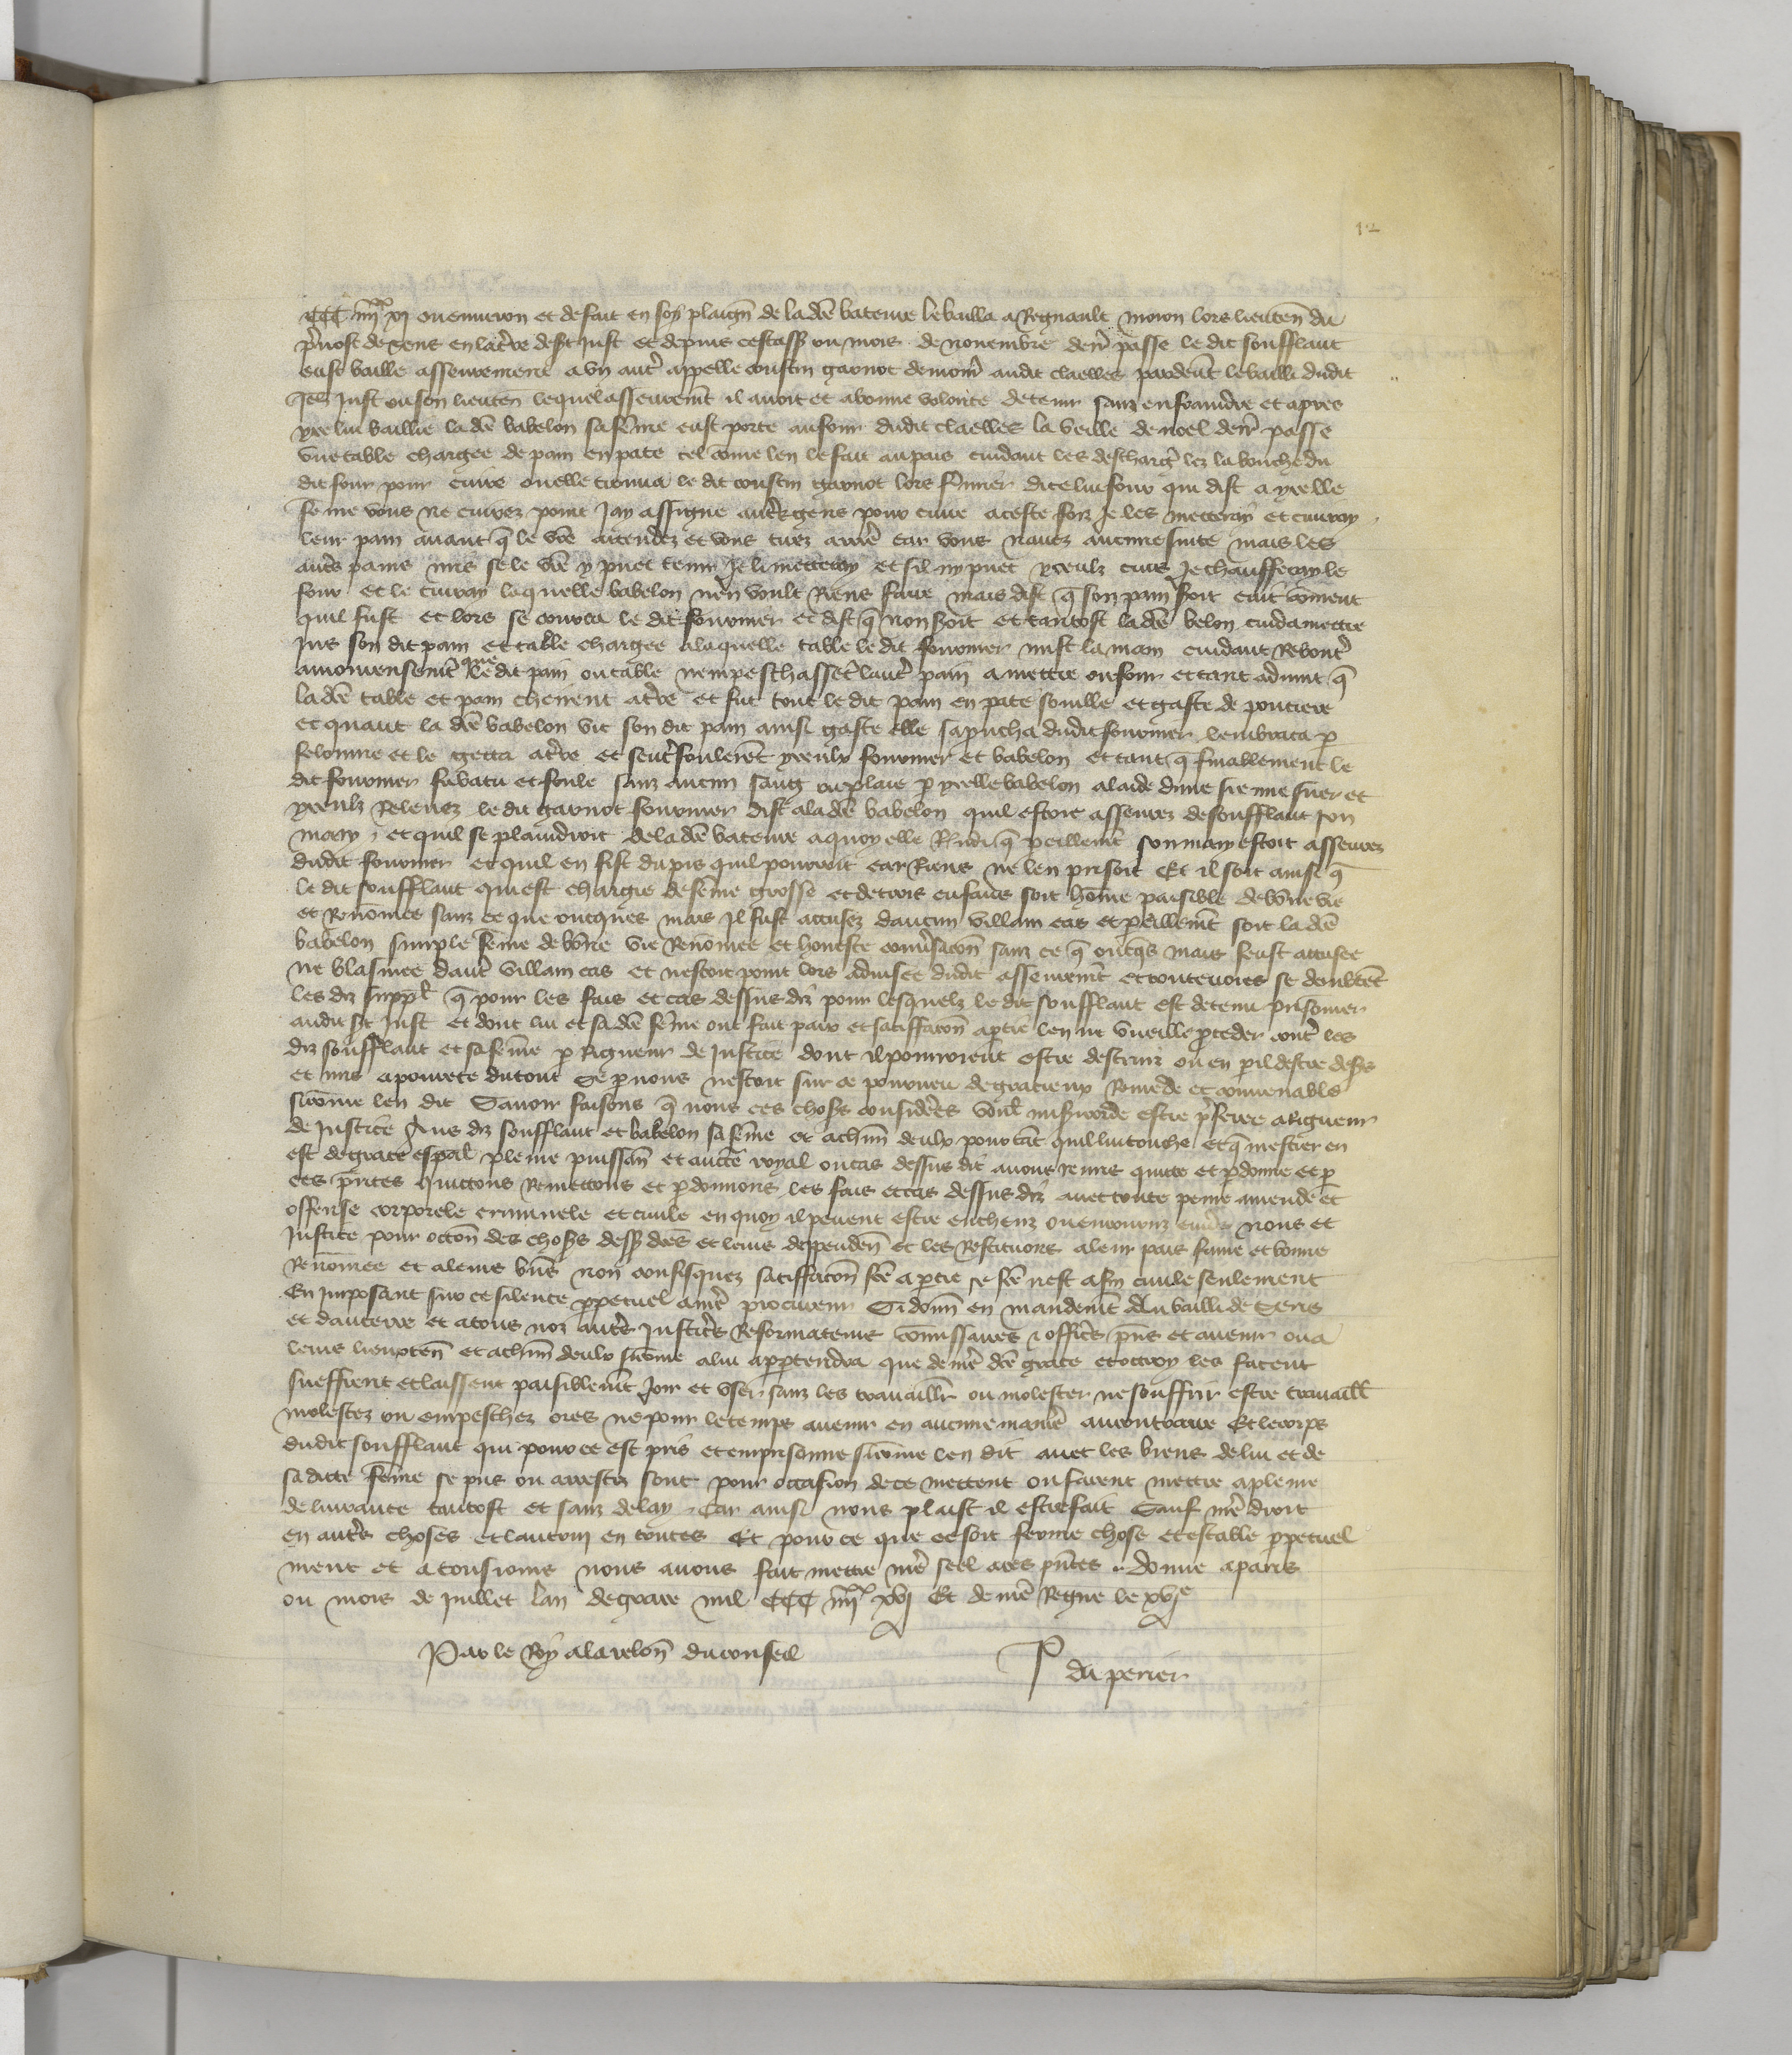 12
CCC IIIIxx XI ou environ et de fait en soy plaign̄ de lad̄e bateure le bailla a Regnault moron lors lieuten̄ du
p̄vost de Sens en la t̄re de st Just et depuis cest ass̄ ou mois de novembre den̄r passe le dit soufflaut
eust baille asseurement a un aut̄ appelle coustin garnot demour̄ audit claelles pardev̄t le bailli dudit
st Just ou son lieuten̄ lequel asseurem̄t il avoit et a bonne volonte de tenir sanz enfraindre et apres
ycelui baillie lad̄e babelon sa fēme eust porte au four dudit claelles la veille de noel den̄r passe
une table chargee de pain en pate tel cōme len le fait au pais cuidant les descharḡ lez la bouche du
dit four pour cuire ou elle trouva le dit coustin garnot lors fōnier dicelui four qui dist a ycelle
fēme vous ne cuirez point jay assigne aut̄s gens pour cuire a ceste foiz je les mettray et cuiray
leur pain avant q̄ le vr̄e attendez et vous tirez arr̄e car vous navez aucune suite mais les
aut̄s pains mis se le vr̄e y puet tenir je li mettray et sil ny puet yceulx cuis je chaufferay le
four et le cuiray laquelle babelon nen voult Riens faire mais dist q̄ son pain seroit cuit cōment
quil fust et lors se courca le dit fournier et dist q̄ non feroit et tantost lad̄e belon cuida mettre
jus son dit pain et table chargee a laquelle table le dit fournier mist la main cuidant Rebout̄
amoureusem̄t que le dit pain ou table nempeschassēt lautr̄ pain a mettre ou four et tant advint q̄
lad̄e table et pain cheirent a t̄re et fut tout le dit pain en pate soullie et gaste de pourriere
et quant la d̄e babelon vit son dit pain ainsi gaste elle sapricha dudit fournier lembraca p̄
felonnie et le getta a t̄re et sentr̄foulerēt yceulx fournier et babelon et tant q̄ finablement le
dit fournier fu batu et foule sanz aucun sang ou plaie p̄ ycelle babelon a laide dune sienne suer et
yceulx Relevez le dit garnot fournier dist a lad̄e babelon quil estoit asseurez de soufflaut son
mary et quil se plaindroit de lad̄e bateure a quoy elle R̄ndi q̄ pareillem̄t son mary estoit asseurez
dudit fournier et quil en fist du pis quil pourroit car Riens ne len prisoit Et il soit ainsi q̄
le dit soufflaut qui est chargie de fēme grosse et de trois enfans soit hōme paisible de bōne vie
et Renōmee sanz ce que oncques mais Il fust accusez daucun villain cas et pareillem̄t soit lad̄e
babelon simple fēme de bōne vie Renōmee et honeste conv̄sacōn sanz ce q̄ oncq̄s mais feust accusee
ne blasmee daut̄ villain cas et nestoit point lors advisee dudit asseurem̄t et toutevoies se doubtēt
les diz suppl̄ q̄ pour les fais et cas dessus diz pour lesquelz le dit soufflaut est detenu prisonnier
audit st Just et dont lui et sad̄e fēme ont fait paix et satiffacōn a partie len ne vueille p̄ceder contr̄ les
diz soufflaut et sa fēme p̄ Rigueur de justice dont il pourroient estre destruiz ou en pil destre desers
et mis a pourete du tout se p̄ nous nestoit sur ce pourveu de gracieux Remede et convenable
si cōme len dit Savoir faisons q̄ nous ces choses considerēs voul̄ misericorde estre p̄feree a Rigueur
de Justice Aus diz soufflaut et babelon sa fēme et a chūn deulx pour tāt quil lui touche et q̄ mestier en
est de grace esp̄al pleine puissan̄ et auctē royal ou cas dessus dit avons remis quitte et p̄donne et p̄
ces p̄ntes quittons Remettons et p̄donnons les fais et cas dessus diz avec toute peine amende et
offense corporele criminele et civile en quoy il peuent estre encheuz ou encouruz envers nous et
Justice pour occōn des choses dess̄ dc̄es et leurs deppenden̄ et les Restituons a leur pais fame et bonne
Renōmee et a leurs biēs non confisquez satiffacōn fc̄e a partie se fc̄e nest a fin civile seulement
En Imposant sur ce silence p̄petuel a nr̄e procureur Si donn̄ en mandem̄t Au bailli de Sens
et daucerre et a tous noz aut̄s Justiciers Reformateurs cōmissaires et offic̄s p̄ns et avenir ou a
leurs lieuxten̄ et a chūn deulx si cōme a lui app̄tendra que de nr̄e dc̄e grace et octroy les facent
sueffrent et laissent paisiblem̄t joir et user sanz les travaillr̄ ou molester ne souffrir estre travaill̄
molestez ou empeschez ores ne pour le temps avenir en aucune manier̄e au contraire Et le corps
dudit soufflaut qui pour ce est pris et emprisonne si cōme len dit avec les biens de lui et de
sa dicte fēme se pris ou arrestez sont pour occasion de ce mettent ou facent mettre a pleine
delivrance tantost et sanz delay Car ainsi nous plaist il estre fait Sauf nr̄e droit
en aut̄s choses et lautrui en toutes Et pour ce que ce soit ferme chose et estable p̄petuel
ment et a tousiours nous avons fait mettre nr̄e seel a ces p̄ntes Donne a paris
ou mois de juillet lan de grace mil CCC IIIIxx XVI Et de nr̄e Regne le xvje
Par le Roy a la relon̄ du conseil
P du perier